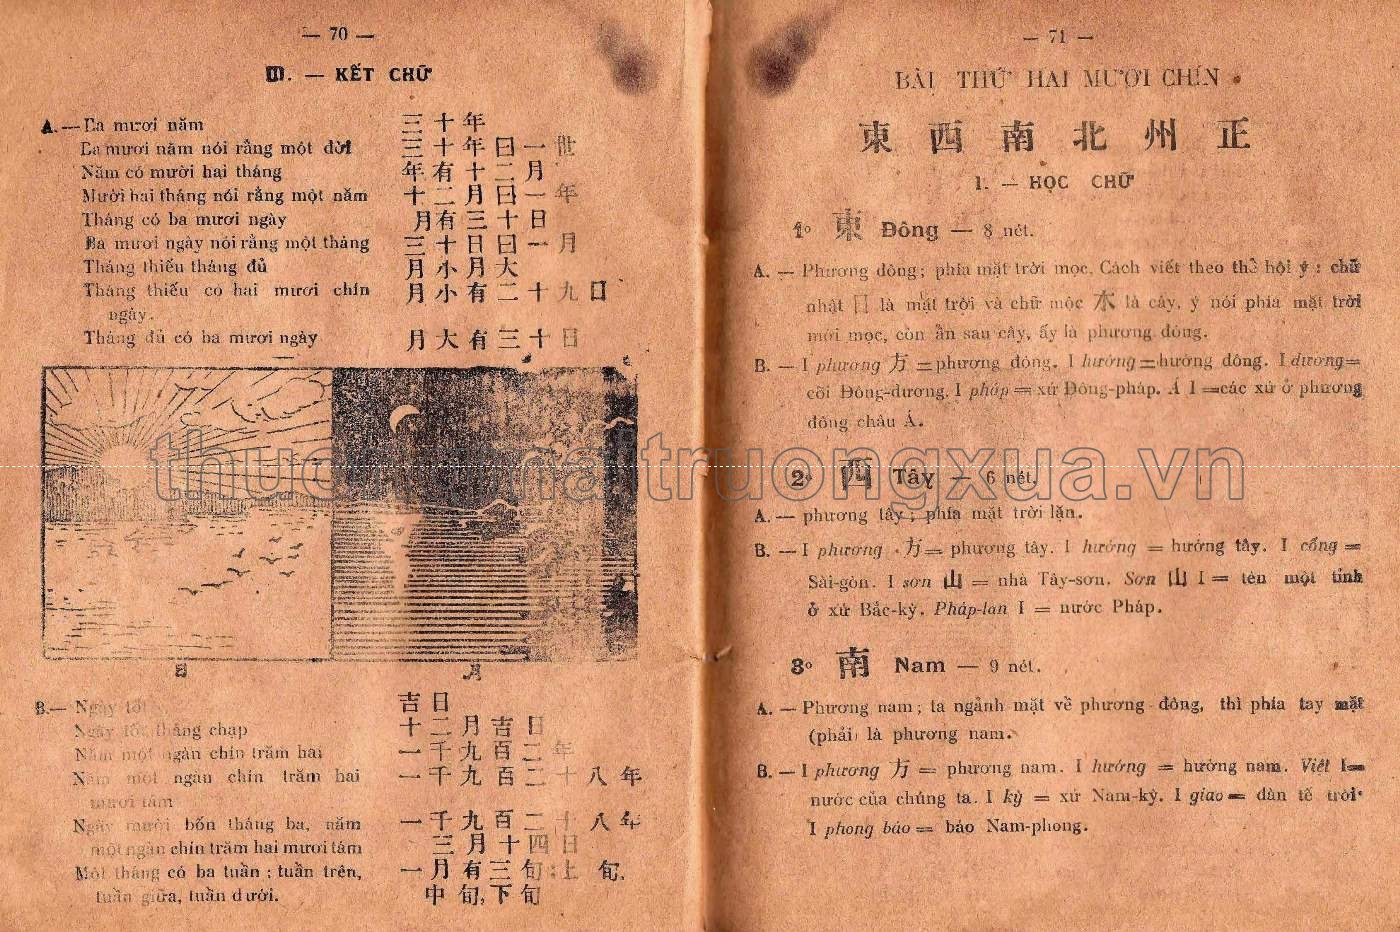 — 70 —
III. — KẾT CHỮ
A. — Ba mươi năm 三十年
Ba mươi năm nói rằng một đời 三十年曰一世
Năm có mười hai tháng 年有十二月
Mười hai tháng nói rằng một năm 十二月曰一年
Tháng có ba mươi ngày 月有三十日
Ba mươi ngày nói rằng một tháng 三十日曰一月
Tháng thiếu tháng đủ 月小月大
Tháng thiếu có hai mươi chín 月小有二十九日
ngày.
Tháng đủ có ba mươi ngày 月大有三十日
日 月
B. — Ngày tốt 吉日
Ngày tốt tháng chạp 十二月吉日
Năm một ngàn chín trăm hai 一千九百二年
Năm một ngàn chín trăm hai 一千九百二十八年
mươi tám
Ngày mười bốn tháng ba, năm 一千九百二十八年
một ngàn chín trăm hai mươi tám 三月十四日
Một tháng có ba tuần ; tuần trên, 一月有三旬:上旬,
tuần giữa, tuần dưới. 中旬,下旬
— 71 —
BÀI THỨ HAI MƯƠI CHÍN
東 西 南 北 州 正
I. — HỌC CHỮ
1° 東 Đông — 8 nét.
A. — Phương đông; phía mặt trời mọc. Cách viết theo thể hội ý : chữ
nhật 日 là mặt trời và chữ mộc 木 là cây, ý nói phía mặt trời
mới mọc, còn ẩn sau cây, ấy là phương đông.
B. — I phương 方 = phương đông. I hướng = hướng đông. I dương =
cõi Đông-dương. I pháp = xứ Đông-pháp. Á I = các xứ ở phương
đông châu Á.
2° 西 Tây — 6 nét.
A. — phương tây ; phía mặt trời lặn.
B. — I phương 方 = phương tây. I hướng = hướng tây. I cổng =
Sài-gòn. I sơn 山 = nhà Tây-sơn. Sơn 山 I = tên một tỉnh
ở xứ Bắc-kỳ. Pháp-lan I = nước Pháp.
3° 南 Nam — 9 nét.
A. — Phương nam ; ta ngảnh mặt về phương đông, thì phía tay mặt
(phải) là phương nam.
B. — I phương 方 = phương nam. I hướng = hướng nam. Việt I =
nước của chúng ta. I kỳ = xứ Nam-kỳ. I giao = đàn tế trời
I phong báo = báo Nam-phong.
thuongmaitruongxua.vn